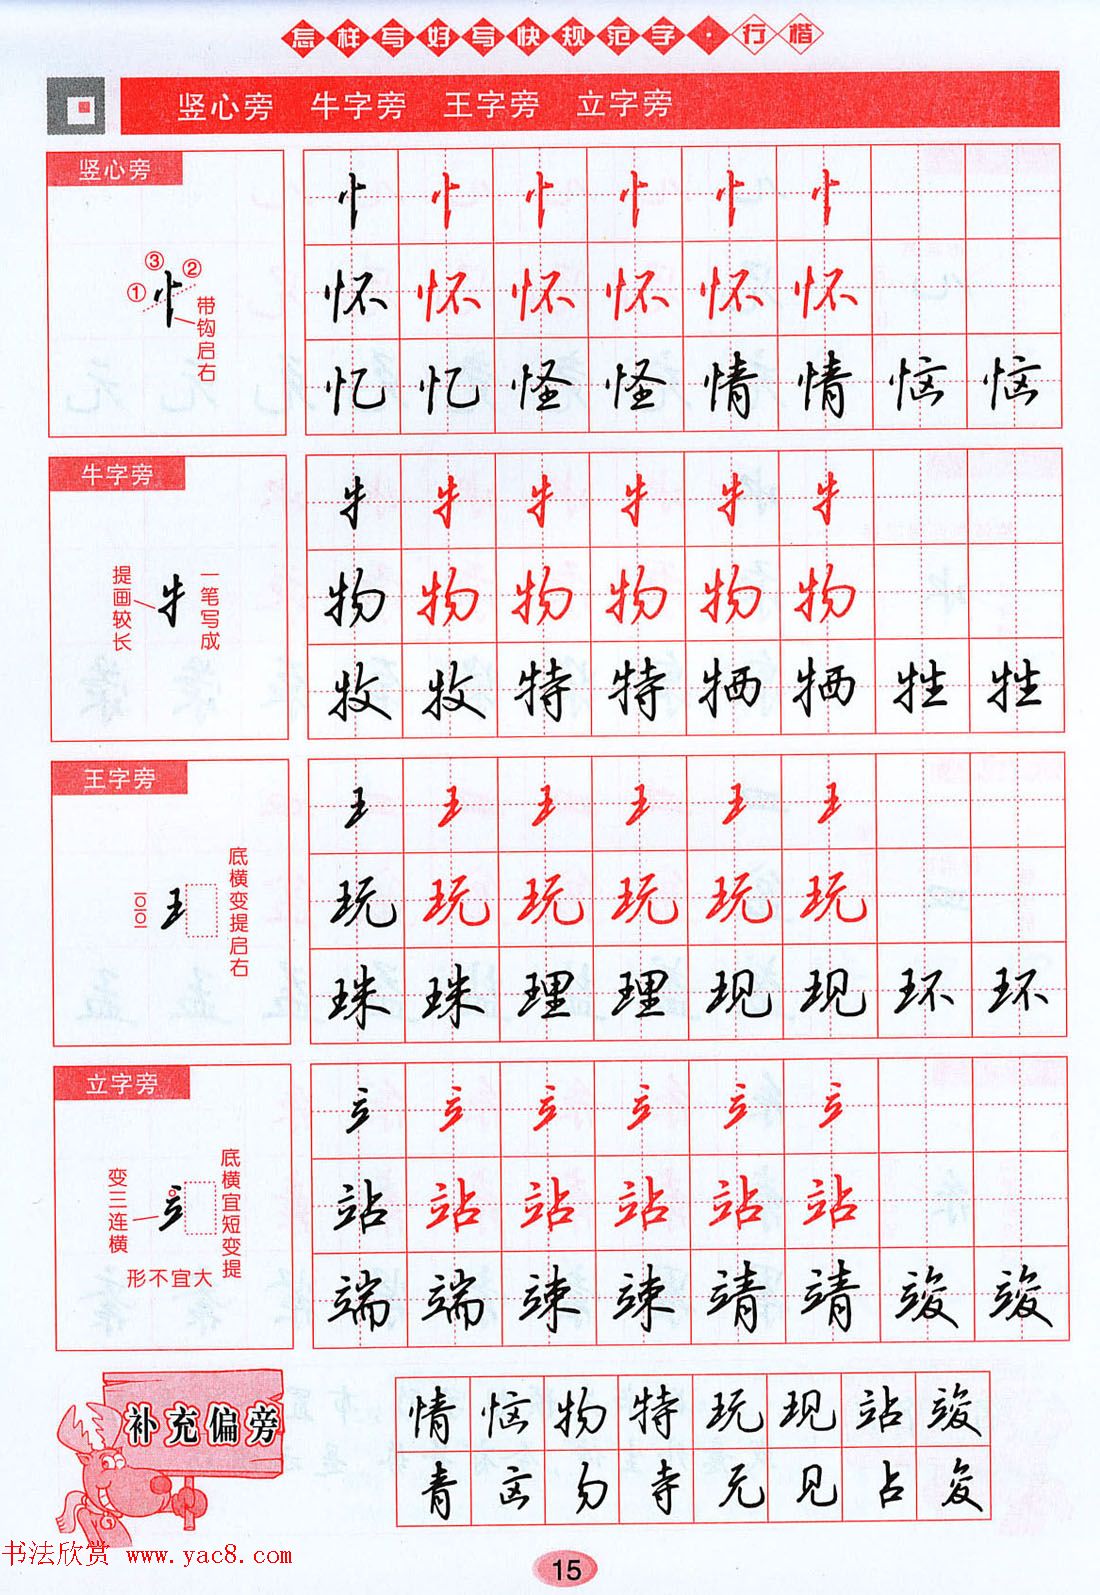 怎样写好写快规范字·行楷
竖心旁 牛字旁 王字旁 立字旁
竖心旁
① ③ ② 忄
带钩启右
忄 忄 忄 忄 忄 忄
怀 怀 怀 怀 怀 怀
忆 忆 怪 怪 情 情 恼 恼
牛字旁
提画较长
牜
一笔写成
牜 牜 牜 牜 牜 牜
物 物 物 物 物 物
牧 牧 特 特 牺 牺 牲 牲
王字旁
王
底横变提启右
王 王 王 王 王 王
玩 玩 玩 玩 玩 玩
珠 珠 理 理 现 现 环 环
立字旁
变三连横
立
底横宜短变提
形不宜大
立 立 立 立 立 立
站 站 站 站 站 站
端 端 竦 竦 靖 靖 竣 竣
补充偏旁
情 恼 物 特 玩 现 站 竣
青 㐫 勿 寺 元 见 占 夋
书法欣赏 www.yac8.com
15